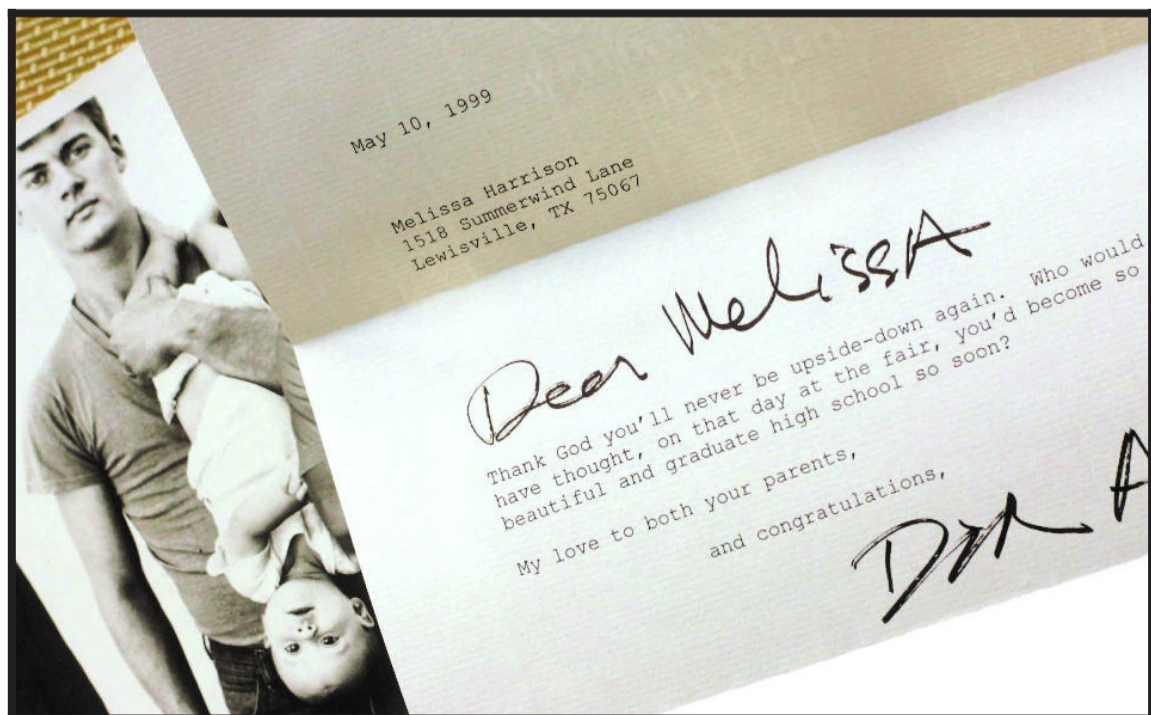 May 10, 1999
Melissa Harrison
1518 Summerwind Lane
Lewisville, TX 75067
Dear Melissa
Thank God you'll never be upside-down again. Who would
have thought, on that day at the fair, you'd become so
beautiful and graduate high school so soon?
My love to both your parents,
and congratulations,
Dick A